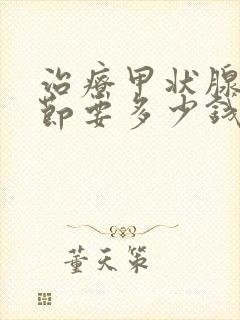 治療甲状腺
節要多少钱
董天策